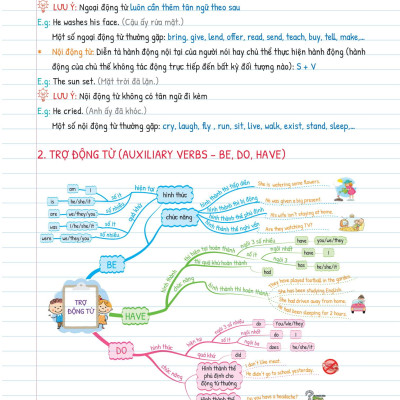 LƯU Ý: Ngoại động từ luôn cần thêm tân ngữ theo sau
E.g: He washes his face. (Cậu ấy rửa mặt.)
Một số ngoại động từ thường gặp: bring, give, lend, offer, read, send, teach, buy, tell, make,...
* Nội động từ: Diễn tả hành động nội tại của người nói hay chủ thể thực hiện hành động (hành
động của chủ thể không tác động trực tiếp đến bất kỳ đối tượng nào): S + V
E.g: The sun set. (Mặt trời đã lặn.)
LƯU Ý: Nội động từ không có tân ngữ đi kèm
E.g: He cried. (Anh ấy đã khóc.)
Một số nội động từ thường gặp: cry, laugh, fly , run, sit, live, walk, exist, stand, sleep,...
2. TRỢ ĐỘNG TỪ (AUXILIARY VERBS – BE, DO, HAVE)
TRỢ ĐỘNG TỪ
BE
hình thức
hiện tại
số ít
am
I
is
he/she/it
số nhiều
are
we/they/you
quá khứ
số ít
was
I/he/she/it
số nhiều
were
we/they/you
chức năng
hình thành thì tiếp diễn
She is watering some flowers.
hình thành thì bị động
He was given a big present.
hình thành thể phủ định
His wife isn't staying at home.
hình thành thể nghi vấn
Are they watching TV?
HAVE
hình thành
thì hiện tại hoàn thành
ngôi 3 số nhiều
have
you/we/they
số ít
ngôi nhất
have
I
ngôi 3
has
he/she/it
thì quá khứ hoàn thành
had
chức năng
hình thành thì hoàn thành
They have played football in the garden.
She has been studying English.
She had driven away from home.
He had been sleeping for 2 hours.
DO
hình thức
hiện tại
ngôi 3 số nhiều
do
You/We/they
số ít
ngôi nhất
do
I
ngôi ba
does
he/she/it
quá khứ
did
chức năng
Hình thành thể
phủ định cho
động từ thường
I don't like meat.
He didn't go to school yesterday.
Hình thành thể
Do you have a headache?